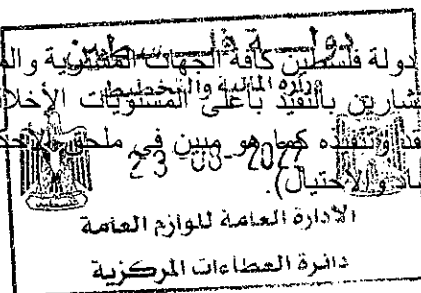 دولة فلسطين
دولة فلسطين كافة الجهات المشترية والم
وزارة المالية والتخطيط
شارين بالتقيد بأعلى المستويات الأخلا
قد وتنفيذه كما هو مبين في ملحق الأحك
اد والاحتيال).
الادارة العامة للوازم العامة
دائرة العطاءات المركزية